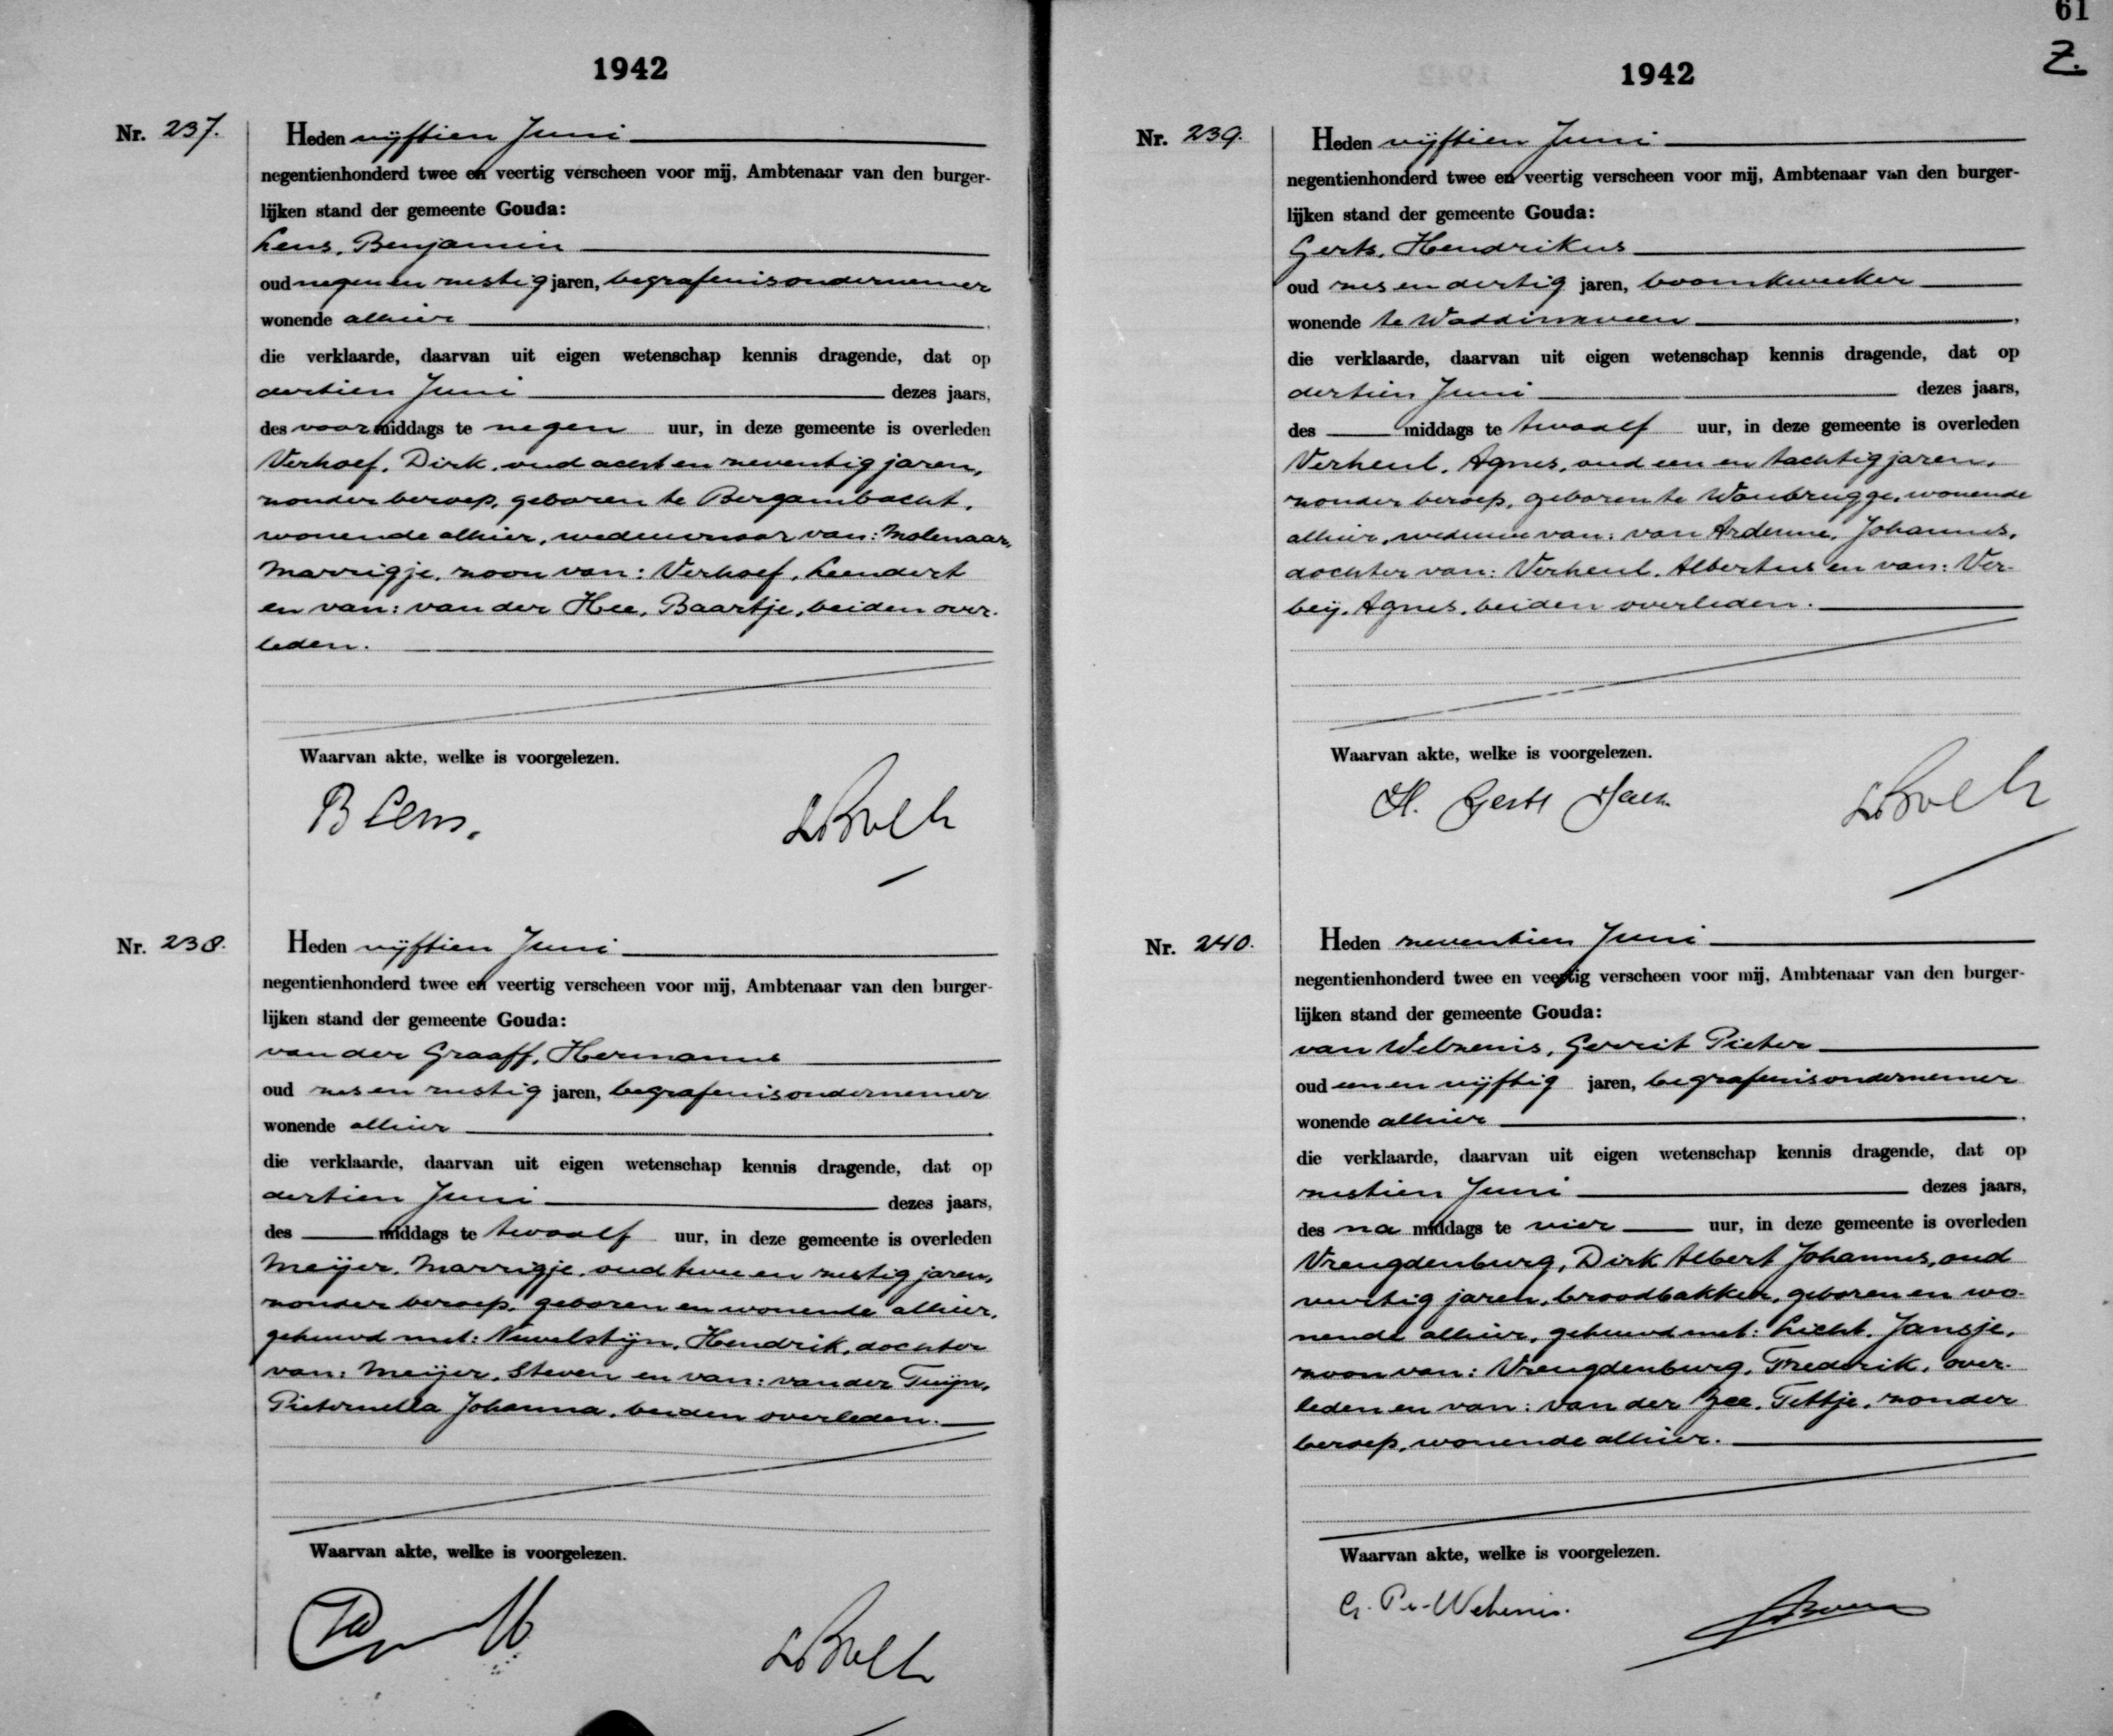 1942
Nr. 237.
Heden vijftien Juni
negentienhonderd twee en veertig verscheen voor mij, Ambtenaar van den burger-
lijken stand der gemeente Gouda:
Lens, Benjamin
oud negen en zestig jaren, begrafenisondernemer
wonende alhier
die verklaarde, daarvan uit eigen wetenschap kennis dragende, dat op
dertien Juni dezes jaars,
des voormiddags te negen uur, in deze gemeente is overleden
Verhoef, Dirk, oud acht en zeventig jaren,
zonder beroep, geboren te Bergambacht,
wonende alhier, weduwnaar van: Molenaar,
Marrigje, zoon van: Verhoef, Leendert
en van: van der Hee, Baartje, beiden over-
leden.
Waarvan akte, welke is voorgelezen.
B Lens.
Nr. 238.
Heden vijftien Juni
negentienhonderd twee en veertig verscheen voor mij, Ambtenaar van den burger-
lijken stand der gemeente Gouda:
van der Graaff, Hermanus
oud zes en zestig jaren, begrafenisondernemer
wonende alhier
die verklaarde, daarvan uit eigen wetenschap kennis dragende, dat op
dertien Juni dezes jaars,
des middags te twaalf uur, in deze gemeente is overleden
Meijer, Marrigje, oud twee en zestig jaren,
zonder beroep, geboren en wonende alhier,
gehuwd met: Neuvelstijn, Hendrik, dochter
van: Meijer, Steven en van: van der Tuijn,
Pieternella Johanna, beiden overleden.
Waarvan akte, welke is voorgelezen.
61
Z.
1942
Nr. 239.
Heden vijftien Juni
negentienhonderd twee en veertig verscheen voor mij, Ambtenaar van den burger-
lijken stand der gemeente Gouda:
Gerts, Hendrikus
oud zes en dertig jaren, boomkweeker
wonende te Waddinxveen,
die verklaarde, daarvan uit eigen wetenschap kennis dragende, dat op
dertien Juni dezes jaars,
des middags te twaalf uur, in deze gemeente is overleden
Verheul, Agnes, oud een en tachtig jaren,
zonder beroep, geboren te Woubrugge, wonende
alhier, weduwe van: van Ardenne, Johannes,
dochter van: Verheul, Albertus en van: Ver-
beij, Agnes, beiden overleden.
Waarvan akte, welke is voorgelezen.
H. Gerts
Nr. 240.
Heden zeventien Juni
negentienhonderd twee en veertig verscheen voor mij, Ambtenaar van den burger-
lijken stand der gemeente Gouda:
van Welzenis, Gerrit Pieter
oud een en vijftig jaren, begrafenisondernemer
wonende alhier
die verklaarde, daarvan uit eigen wetenschap kennis dragende, dat op
zestien Juni dezes jaars,
des na middags te vier uur, in deze gemeente is overleden
Vreugdenburg, Dirk Albert Johannes, oud
veertig jaren, broodbakker, geboren en wo-
nende alhier, gehuwd met: Licht, Jansje,
zoon van: Vreugdenburg, Frederik, over-
leden en van: van der Zee, Tettje, zonder
beroep, wonende alhier.
Waarvan akte, welke is voorgelezen.